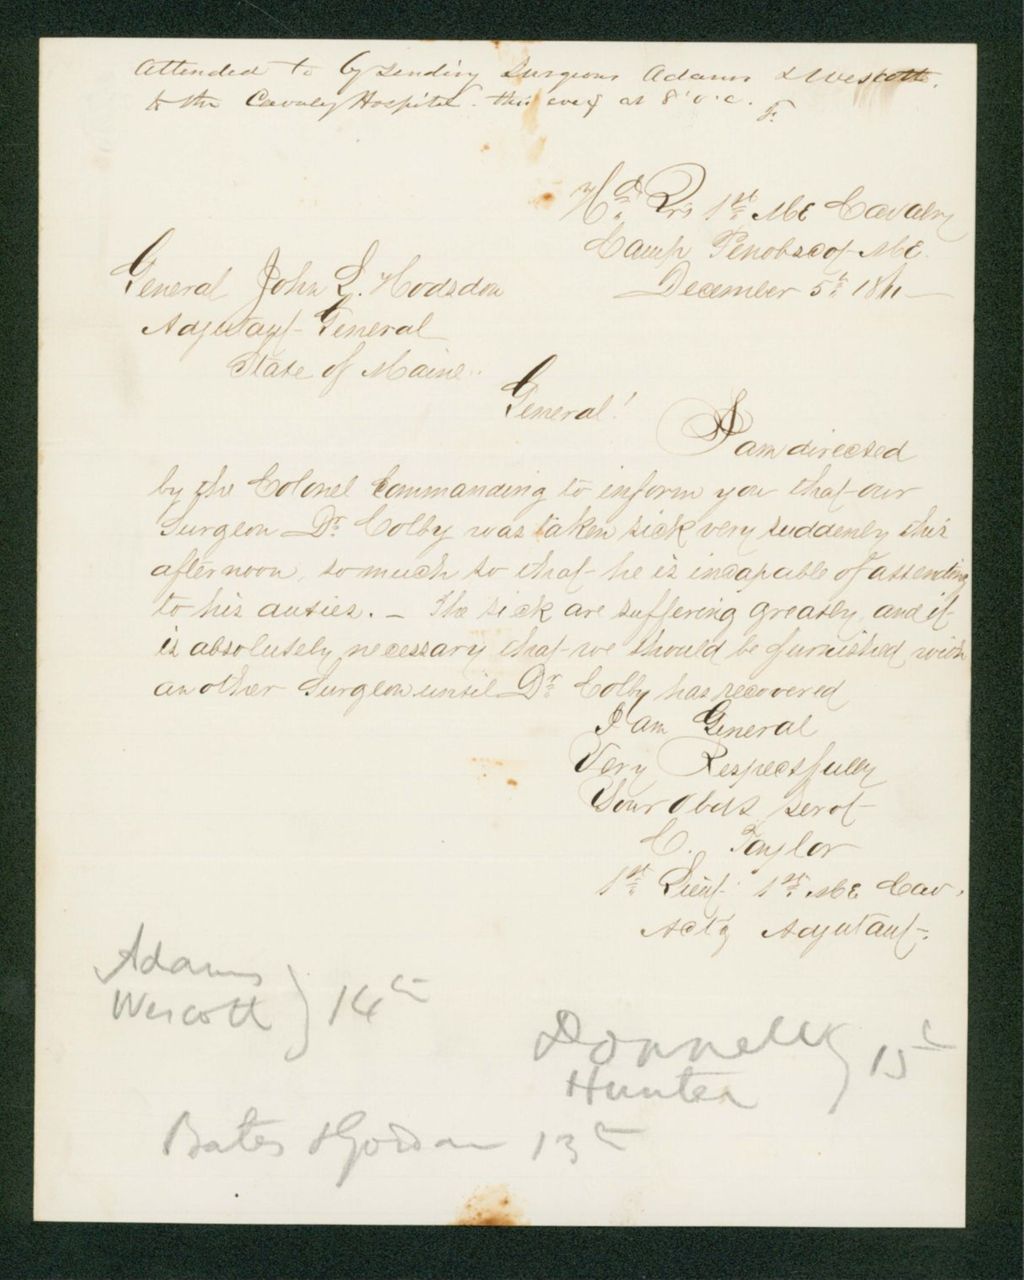 Attended to by sending Surgeons Adams & Wescott.
to the Cavalry Hospital. this eveg at 8' o'c.
Hd. Qrs 1st Me Cavalry
Camp Penobscot Me.
December 5th 1861
General John L. Hodsdon
Adjutant General
State of Maine
General!
I am directed
by the Colonel Commanding to inform you that our
Surgeon Dr. Colby was taken sick very suddenly this
afternoon, so much so that he is incapable of attending
to his duties. — The sick are suffering greatly and it
is absolutely necessary that we should be furnished with
another Surgeon until Dr Colby has recovered
I am General
Very Respectfully
Your Obdt Servt
C. Taylor
1st Lieut 1st Me Cav.
Actg Adjutant.
Adams
Wescott } 14th
Donnelly
Hunter } 15th
Bates & Gordon 13th